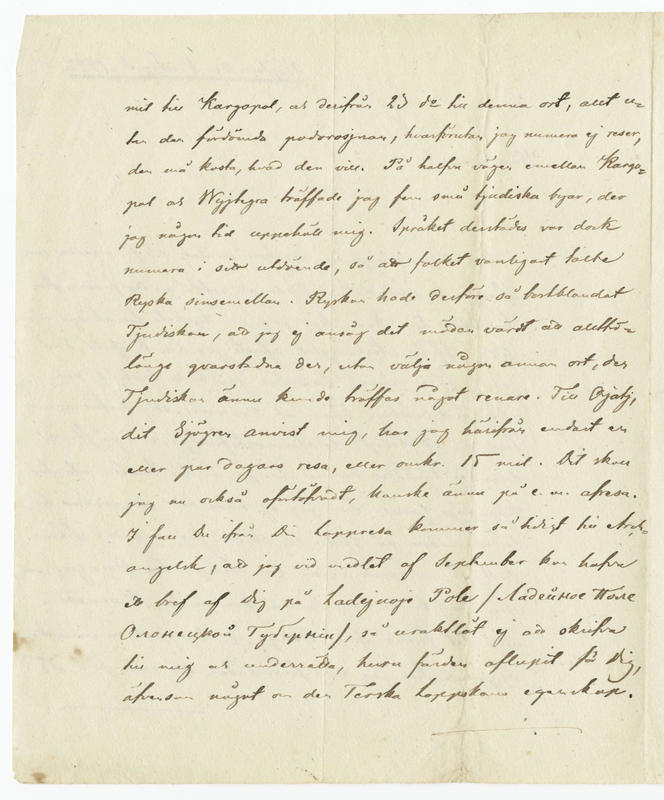 mil till Kargopol, och derifrån 23 do till denna ort, allt u-
tan den fördömda podorosjnan, hvarförutan jag numera ej reser,
den må kosta, hvad den vill. På halfva vägen emellan Kargo-
pol och Wyjtegra träffade jag fem små tjudiska byar, der
jag någon tid uppehöll mig. Språket derstädes var dock
numera i sitt utdöende, så att folket vanligast talte
Ryska sinsemellan. Ryskan hade derföre så bortblandat
Tjudiskan, att jag ej ansåg det mödan värdt att alltför-
länge qvarstadna der, utan välja någon annan ort, der
Tjudiskan ännu kunde träffas något renare. Till Ojatj,
dit Sjögren anvist mig, har jag härifrån endast en
eller par dagars resa, eller omkr. 15 mil. Dit skall
jag nu också ofördröjdt, kanske ännu på e. m. afresa.
I fall Du ifrån Din Lappresa kommer så tidigt till Arch-
angelsk, att jag vid medlet af September kan hafva
ett bref af Dig på Ladejnoje Pole /Ладейное Поле
Олонецкой Губернiи/, så uraktlåt ej att skrifva
till mig och underrätta, huru färden aflupit för Dig,
äfvensom något om den Terska Lappskans egenskap.